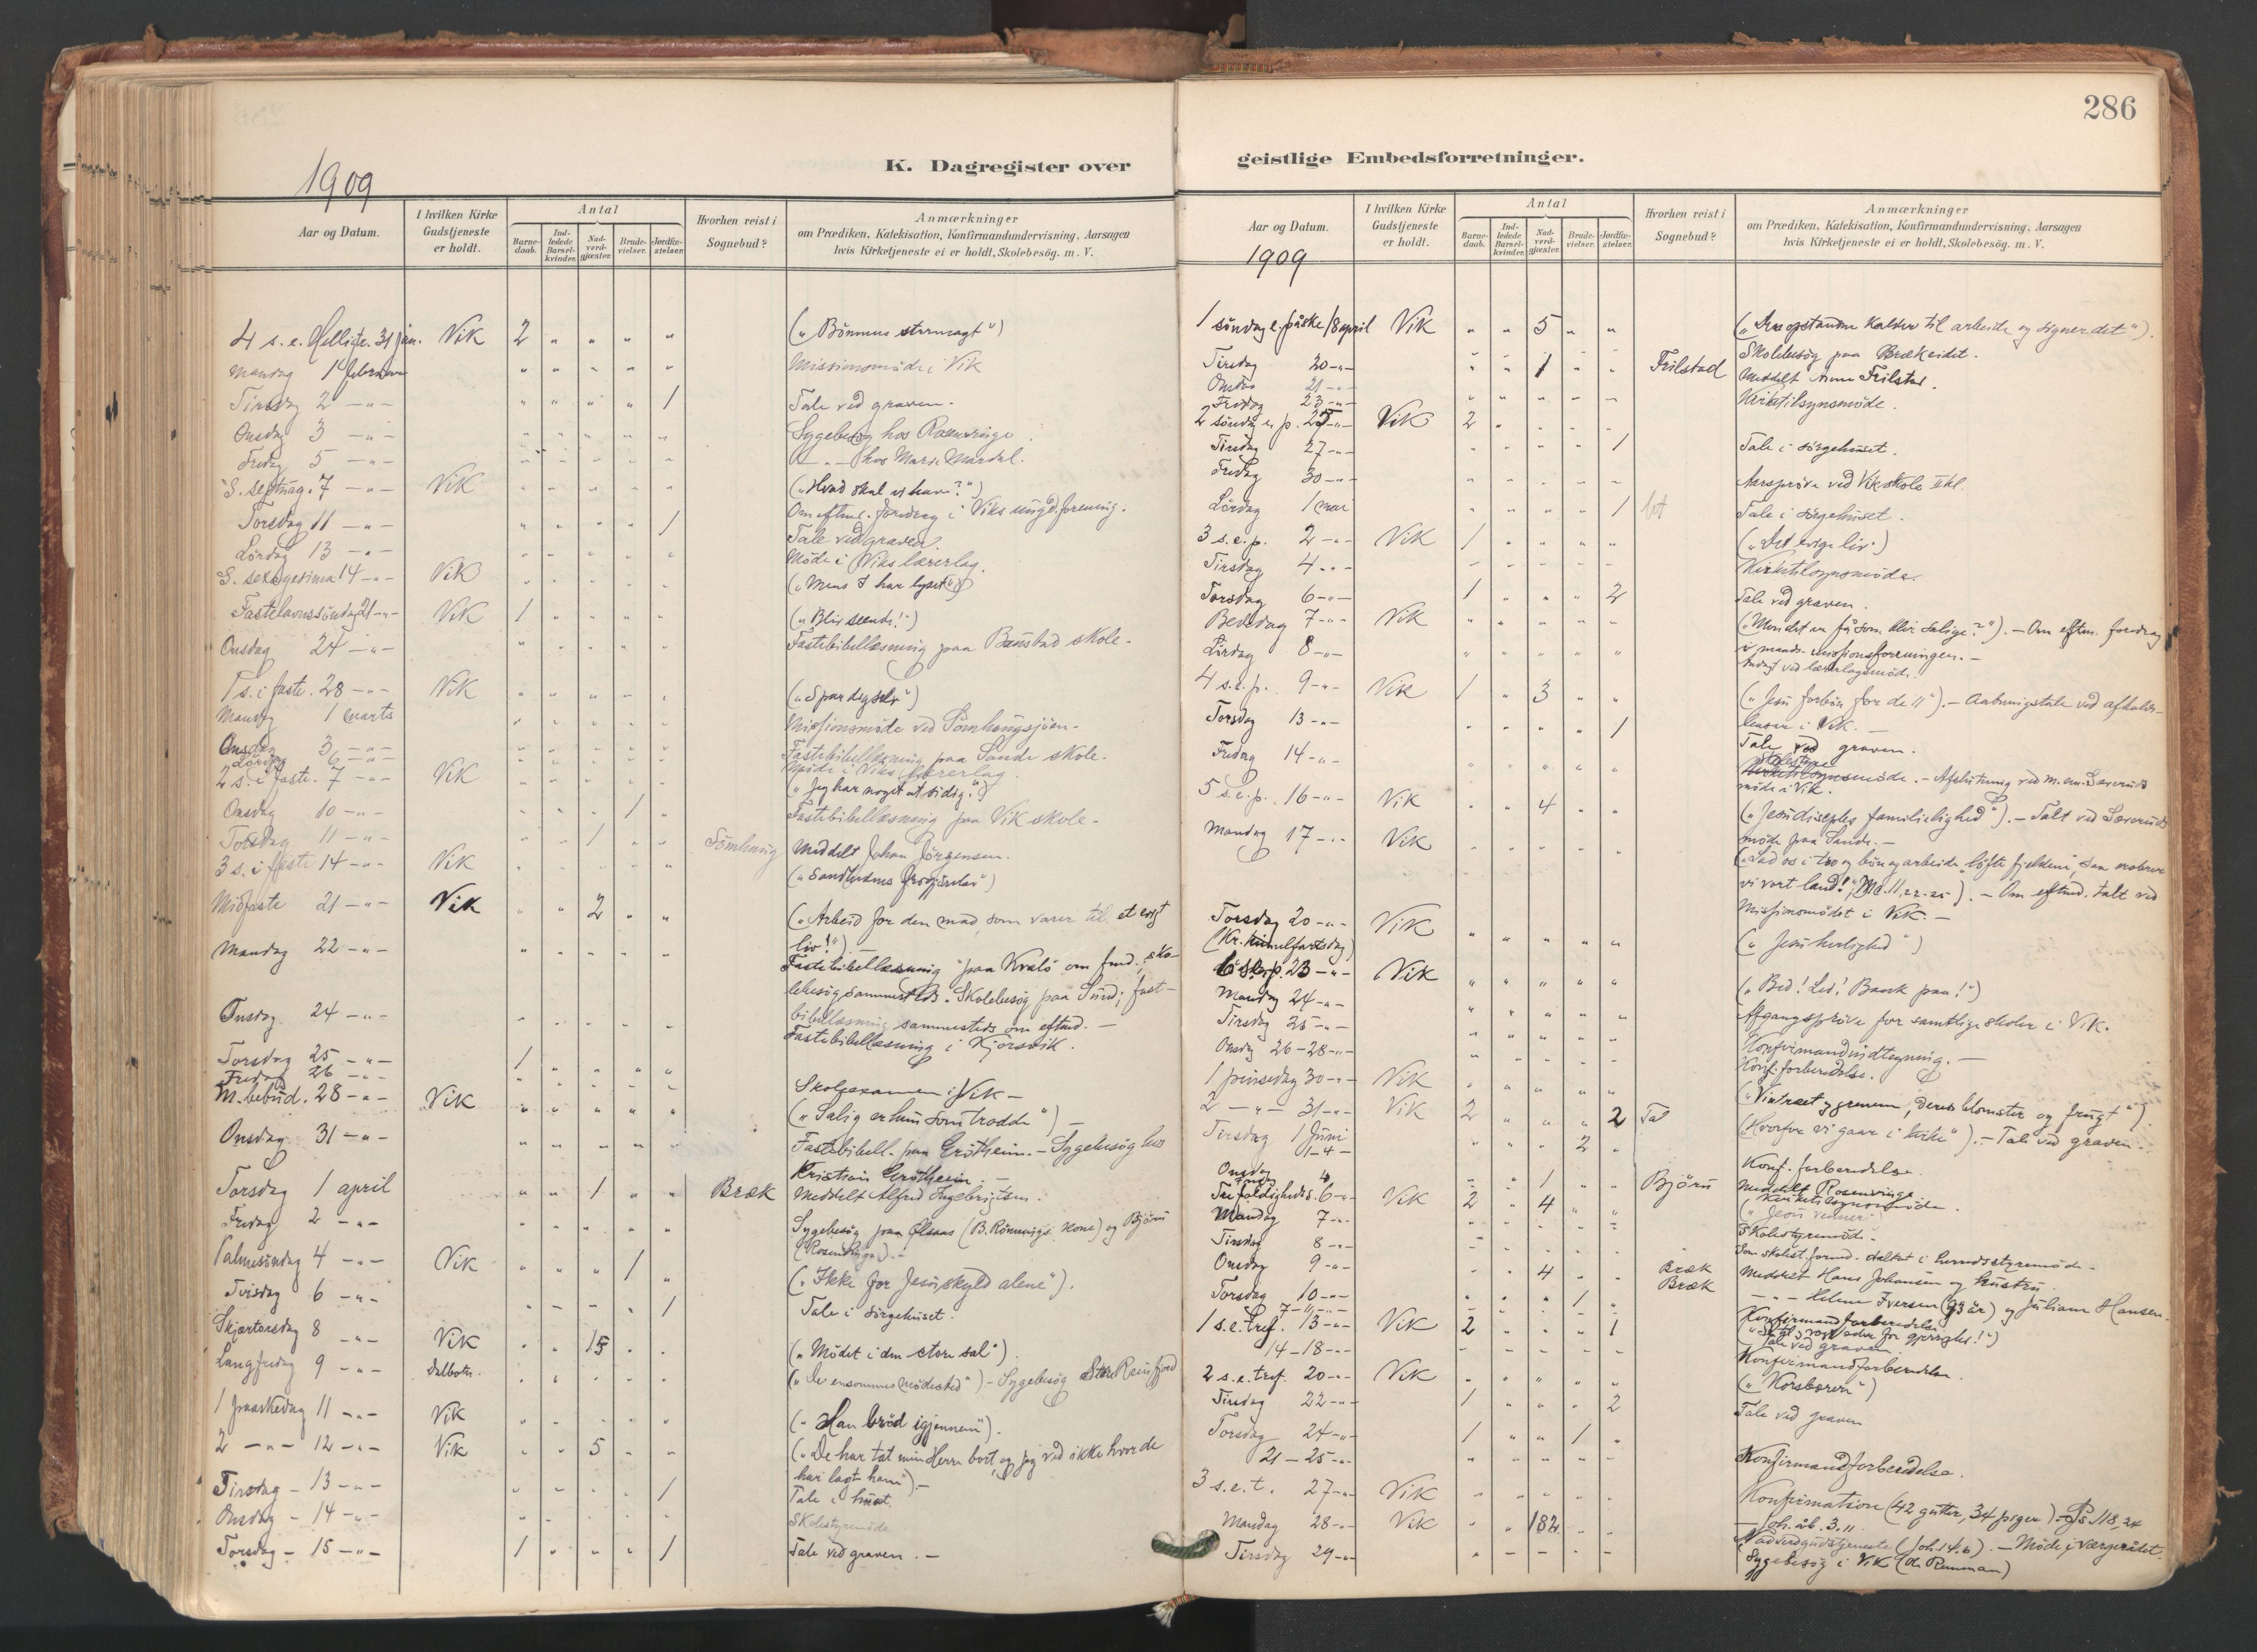 286
K. Dagregister over
geistlige Embedsforretninger.
1909
Aar og Datum.
I hvilken Kirke Gudstjeneste er holdt.
Antal
Barne-daab.
Ind-ledede Barsel-kvinder.
Nad-verd-gjæster.
Brude-vielser.
Jordfæ-stelser.
Hvorhen reist i Sognebud?
Anmærkninger
om Prædiken, Katekisation, Konfirmandundervisning, Aarsagen
hvis Kirketjeneste ei er holdt, Skolebesög. m. V.
4 s. e. Helligtr. 31 jan. Vik 2 " " " " („Bönnens stormagt“)
Mandag 1 februar " " " " " Missionsmöde i Vik
Tirsdag 2 -"- " " " " 1 Tale ved graven.
Onsdag 3 -"- " " " " " Sygebesög hos Rosenvinge
Fredag 5 -"- " " " " " -"- hos Marie Mardal.
S. septuag. 7 -"- Vik " " " " " („Hvad skal vi have?“)
Om eftmd. foredrag i Viks ungd.forening.
Torsdag 11 -"- " " " " 1 Tale ved graven.
Lördag 13 -"- " " " " " Möde i Viks lærerlag.
S. sexagesima 14 -"- Vik " " " " " („Mens I har lyset“)
Fastelavnssöndag 21 -"- Vik 1 " " " " („Bliv seende!“)
Onsdag 24 -"- " " " " " Fastebibellæsning paa Baustad skole.
1 s. i faste. 28 -"- Vik " " " " " („Spar dig selv“)
Mandag 1 marts " " " " " Missionsmöde ved Sömhaugsjöen.
Onsdag 3 -"- " " " " " Fastebibellæsning paa Sande skole.
Lördag 6 -"- " " " " " Möde i Viks lærerlag.
2 s. i faste. 7 -"- Vik " " " " " („Jeg har noget at si dig.“)
Onsdag 10 -"- " " " 1 " Fastebibellæsning paa Vik skole.
Torsdag 11 -"- " " 1 " " Sömhaug Meddelt Johan Jörgensen.
3 s. i faste 14 -"- Vik " " " " " („Sandhedens frigjörelse“)
Midfaste 21 -"- Vik " " 2 " " („Arbeid for den mad som varer til et evigt
liv!“).
Mandag 22 -"- " " " " " Fastebibellæsning paa Kvalö om fmd., sko-
lebesög sammesteds. Skolebesög paa Sund; fast-
bibellæsning sammesteds om eftmd. -
Onsdag 24 -"- " " " " " Fastebibellæsning i Kjörsvik.
Torsdag 25 -"- 1 " " " "
Fredag 26 -"- " " " " " Skoleexamen i Vik -
M. bebud. 28 -"- Vik " " " " " („Salig er hun som trodde“) -
Onsdag 31 -"- " " " " " Fastebibell. paa Grötheim. - Sygebesög hos
Kristian Grötheim. -
Torsdag 1 april " " 1 " " Bræk Meddelt Alfred Ingebrigtsen.
Fredag 2 -"- " " " " " Sygebesög paa Olsaas (B. Rönnings kone) og Björu
(Rosenvinge). -
Palmesöndag 4 -"- Vik " " " 1 " („Ikke for Jesu skyld alene“).
Tirsdag 6 -"- " " " " 1 Tale i sörgehuset.
Skjærtorsdag 8 -"- Vik " " 15 " " („Mödet i den store sal“).
Langfredag 9 -"- Dalbotn. " " " " " („De ensommes mödested“) - Sygebesög Store Reinfjord
1 paaskedag 11 -"- Vik " " " " " („Han bröd igjennem“).
2 -"- 12 -"- Vik " " 5 " " („De har tat min Herre bort, og jeg ved ikke hvor de
har lagt ham“) -
Tirsdag - 13 -"- " " " " 1 Tale i huset.
Onsdag - 14 -"- " " " " " Skolestyremöde
Torsdag - 15 -"- 1 " " " 1 Tale ved graven. -
Aar og Datum.
1909
I hvilken Kirke Gudstjeneste er holdt.
Antal
Barne-daab.
Ind-ledede Barsel-kvinder.
Nad-verd-gjæster.
Brude-vielser.
Jordfæ-stelser.
Hvorhen reist i Sognebud?
Anmærkninger
om Prædiken, Katekisation, Konfirmandundervisning, Aarsagen
hvis Kirketjeneste ei er holdt, Skolebesög. m. V.
1 söndag e. påske 18 april Vik " " 5 " " („Den opstandne kalder til arbeide og signer det“).
Skolebesög paa Brækeidet.
Tirsdag 20 -"- " " 1 " " Frilstad Meddelt Frilstad.
Onsdag 21 -"-
Fredag 23 -"- " " " " " Kirketilsynsmöde.
2 söndag e. p. 25 -"- Vik 2 " " " "
Tirsdag 27 -"- " " " " 1 Tale i sörgehuset.
Fredag 30 -"- " " " " " Aarspröve ved Vik skole II kl.
Lördag 1 mai " " " " 1 Tale i sörgehuset.
3 s. e. p. 2 -"- Vik 1 " " " " („Det evige liv“)
Tirsdag 4 -"- " " " " " Kirketilsynsmöde.
Torsdag 6 -"- 1 " " " 2 Tale ved graven.
Bededag 7 -"- Vik " " " " " („Mon det er få som blir salige?“). - Om eftm. foredrag
i mands-missionsforeningen. -
Lördag 8 -"- " " " " " ved lærerlagsmöde.
4 s. e. p. 9 -"- Vik 1 " 3 " " („Jesu forbön for de 11“). - Aabningstale ved afholds-
i Vik. -
Torsdag 13 -"- " " " " 1 Tale ved graven.
Fredag 14 -"- " " " " " Skolestyremöde. - Afslutning ved m. em. Sæveruds
möde i Vik.
5 s. e. p. 16 -"- Vik " " 4 " " („Jesu disciples familielighed“). - Talt ved Sæveruds
möde paa Sande. -
Mandag 17 -"- Vik " " " " " („Lad os i tro og bön og arbeide löfte fjeldene, saa erobrer
vi vort land!“ Mc. 11, 22-25). - Om eftmd. talt ved
Missionsmödet i Vik. -
Torsdag 20 -"- Vik " " " " " („Jesu herlighed“)
(Kr. himmelfartsdag)
6 s. e. p. 23 -"- Vik " " " " " („Bed! Led! Bank paa!“)
Mandag 24 -"- " " " " " Afgangspröve for samtlige skoler i Vik.
Tirsdag 25 -"- " " " " " Konfirmandindtegning. -
Onsdag 26-28 -"- " " " " " Konf.forberedelse.
1 pinsedag 30 -"- Vik " " " " " („Vintræet, grenene, deres blomster og frugt“).
2 -"- 31 -"- Vik 2 " " " 2 Tal („Hvorfor vi gaar i kirke“). - Tale ved graven.
Tirsdag 1 Juni " " " 2 "
1-4 - Konf. forberedelse.
Onsdag " " 1 " " Björu Meddelt Rosenvinge
Kirketilsynsmöde.
Trefoldighedss. 6 -"- Vik 2 " 4 " " („Jesu venner“)
Mandag 7 -"- " " " " " Skolestyremöde.
Tirsdag 8 -"- " " " " " Som skolest. formd. deltat i herredsstyremöde.
Onsdag 9 -"- " " 4 " " Bræk Meddelt Hans Johansen og hustru.
Bræk -"- Helene Iversen (93 år) og Juliane Hansen.
Torsdag 10 -"- " " " 1 "
7-11 -"- Konfirmandforberedelse
1 s. e. tref. 13 -"- Vik 2 " " " 1 („ vare eder for gjerrighed!“)
Tale ved graven
14-18 -"- " " " " " Konfirmandforberedelse.
2 s. e. tref. 20 -"- Vik " " " " " („Korsbæreren“)
Tirsdag 22 -"- 1 " " " 2 Tale ved graven
Torsdag 24 -"- 1 " " 1 "
21-25 -"- " " " " " Konfirmandforberedelse.
3 s. e. t. 27 -"- Vik " " " " " Konfirmation (42 gutter, 34 piger) - Ps. 118, 24
- Joh. åb. 3, 11.
Mandag 28 -"- Vik " " 182 " " Nadverdgudstjeneste (Joh. 14, 6). - Möde i værgerådet.
Tirsdag 29 -"- " " " " " Sygebesög i Vik